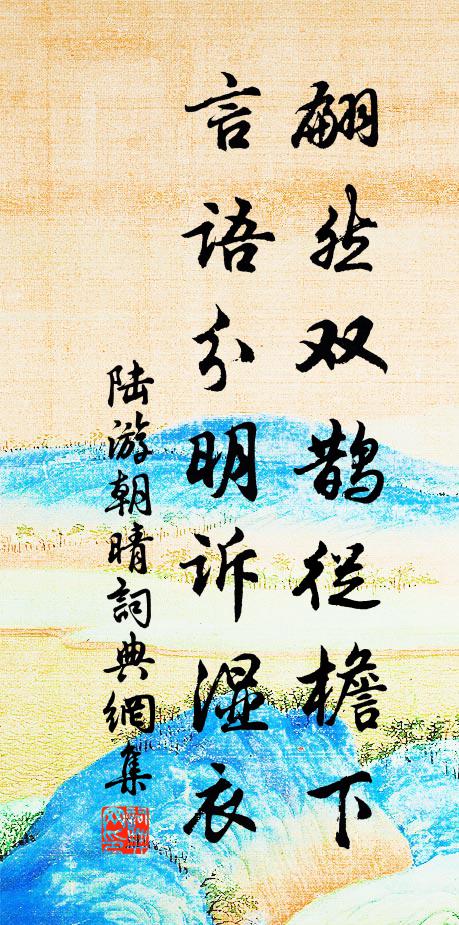 翩然双鹊从檐下
言语分明诉湿衣
陆游朝晴詞典網集